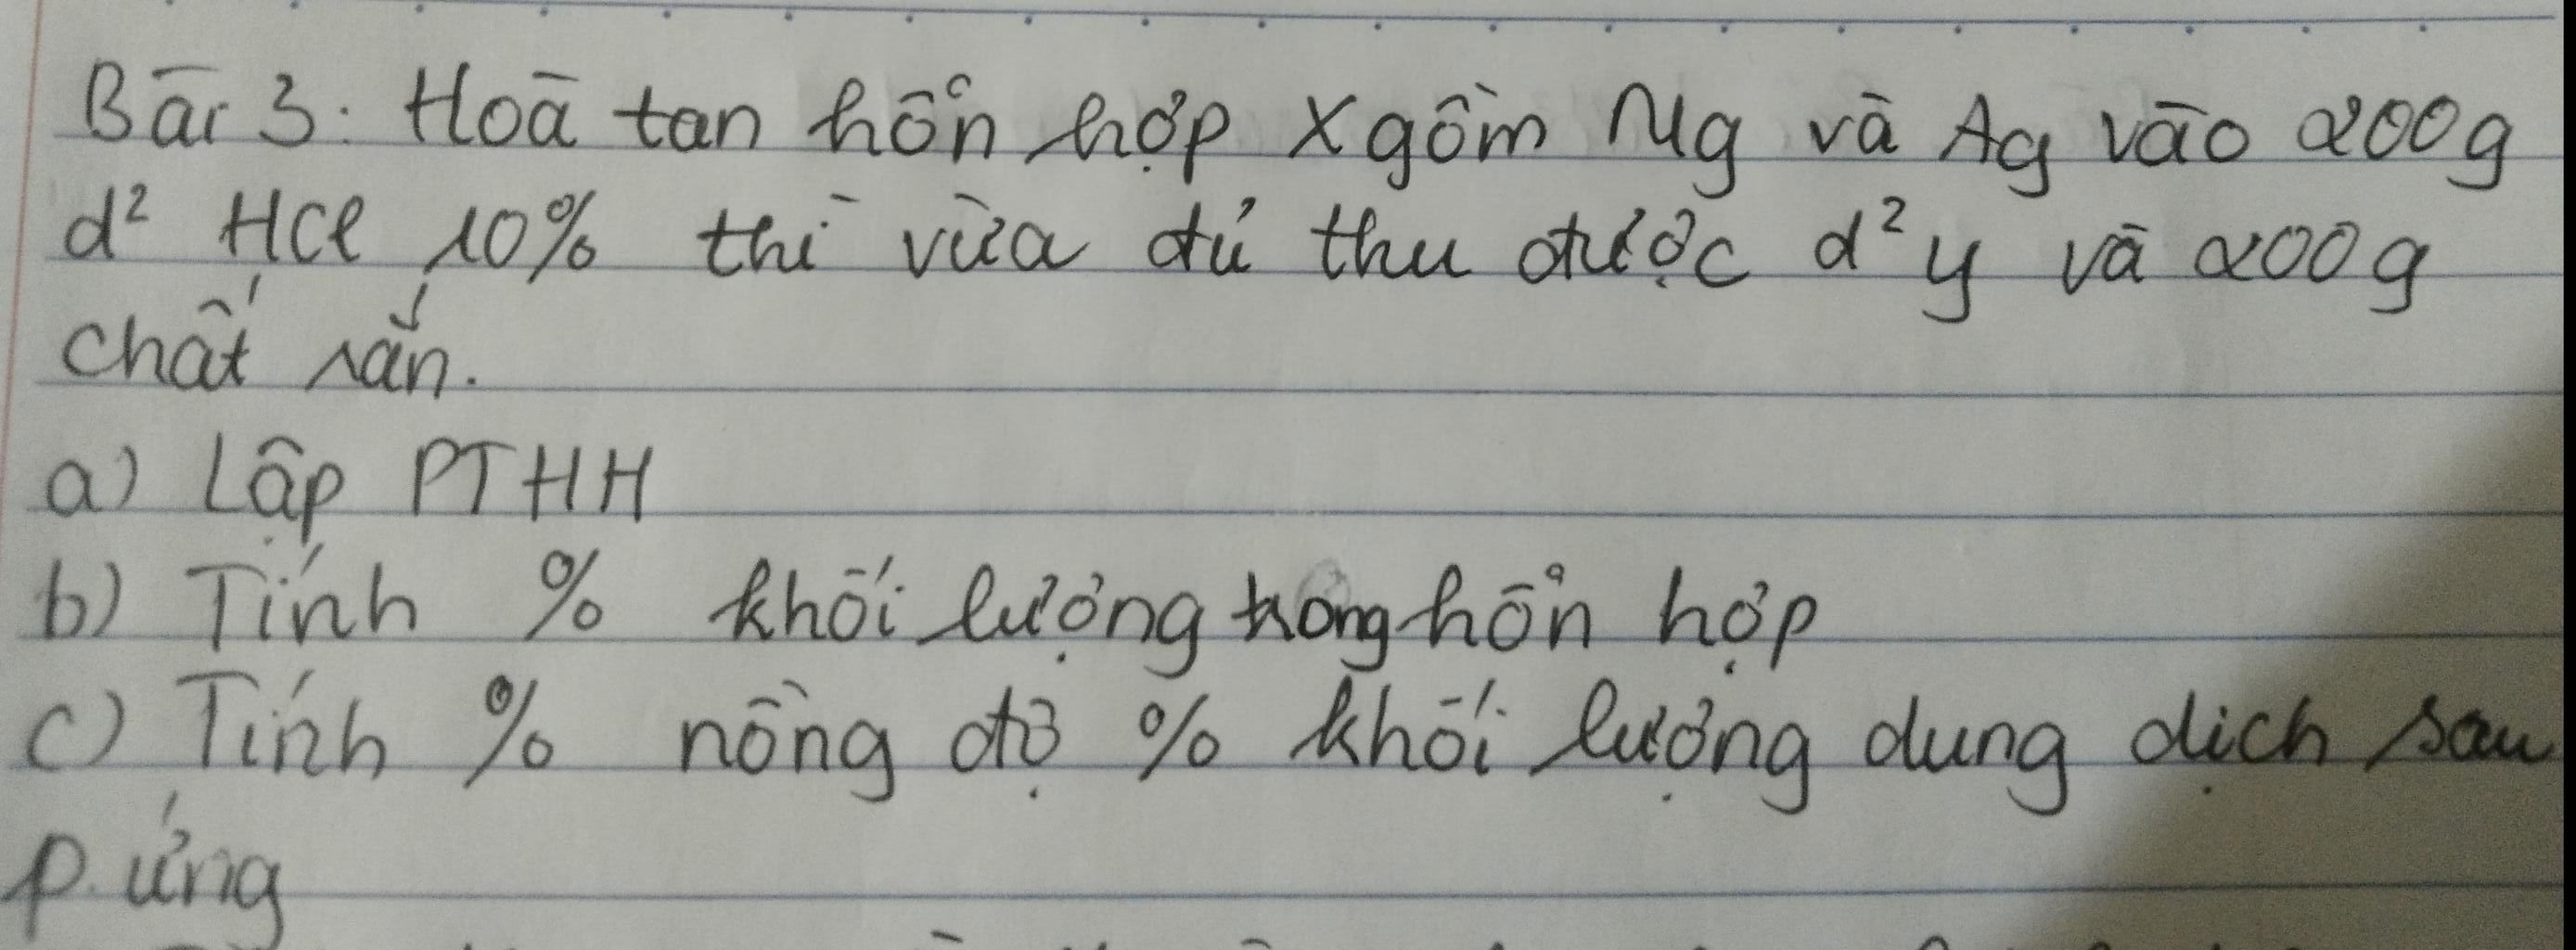 Bài 3: Hoà tan hỗn hợp X gồm Mg và Ag vào 200g
d² HCl 10% thì vừa đủ thu được d² y và 200g
chất rắn.
a) Lập PTHH
b) Tính % khối lượng trong hỗn hợp
c) Tính % nồng độ % khối lượng dung dịch sau
p. ứng